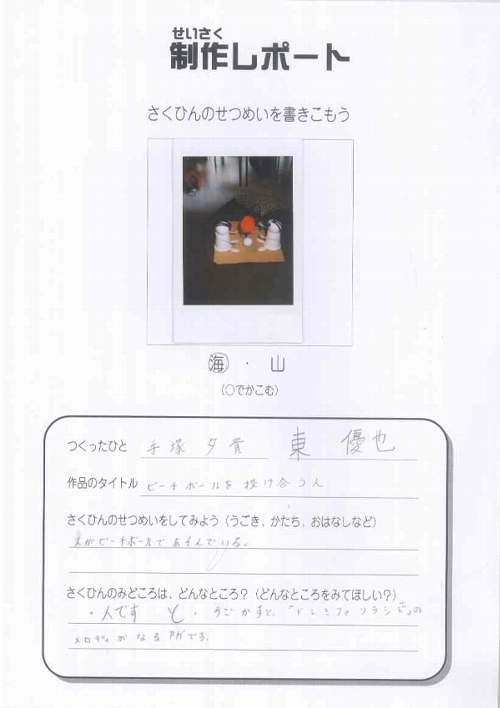 せいさく
制作レポート
さくひんのせつめいを書きこもう
海・山
(○でかこむ)
つくったひと 手塚 夕貴 東 優也
作品のタイトル ビーチボールを投け合う人
さくひんのせつめいをしてみよう(うごき、かたち、おはなしなど)
人がビーチボールであそんでいる。
さくひんのみどころは、どんなところ?(どんなところをみてほしい?)
・人です と・うごかすと、「ドレミファソラシド」の
メロディがなる所です。